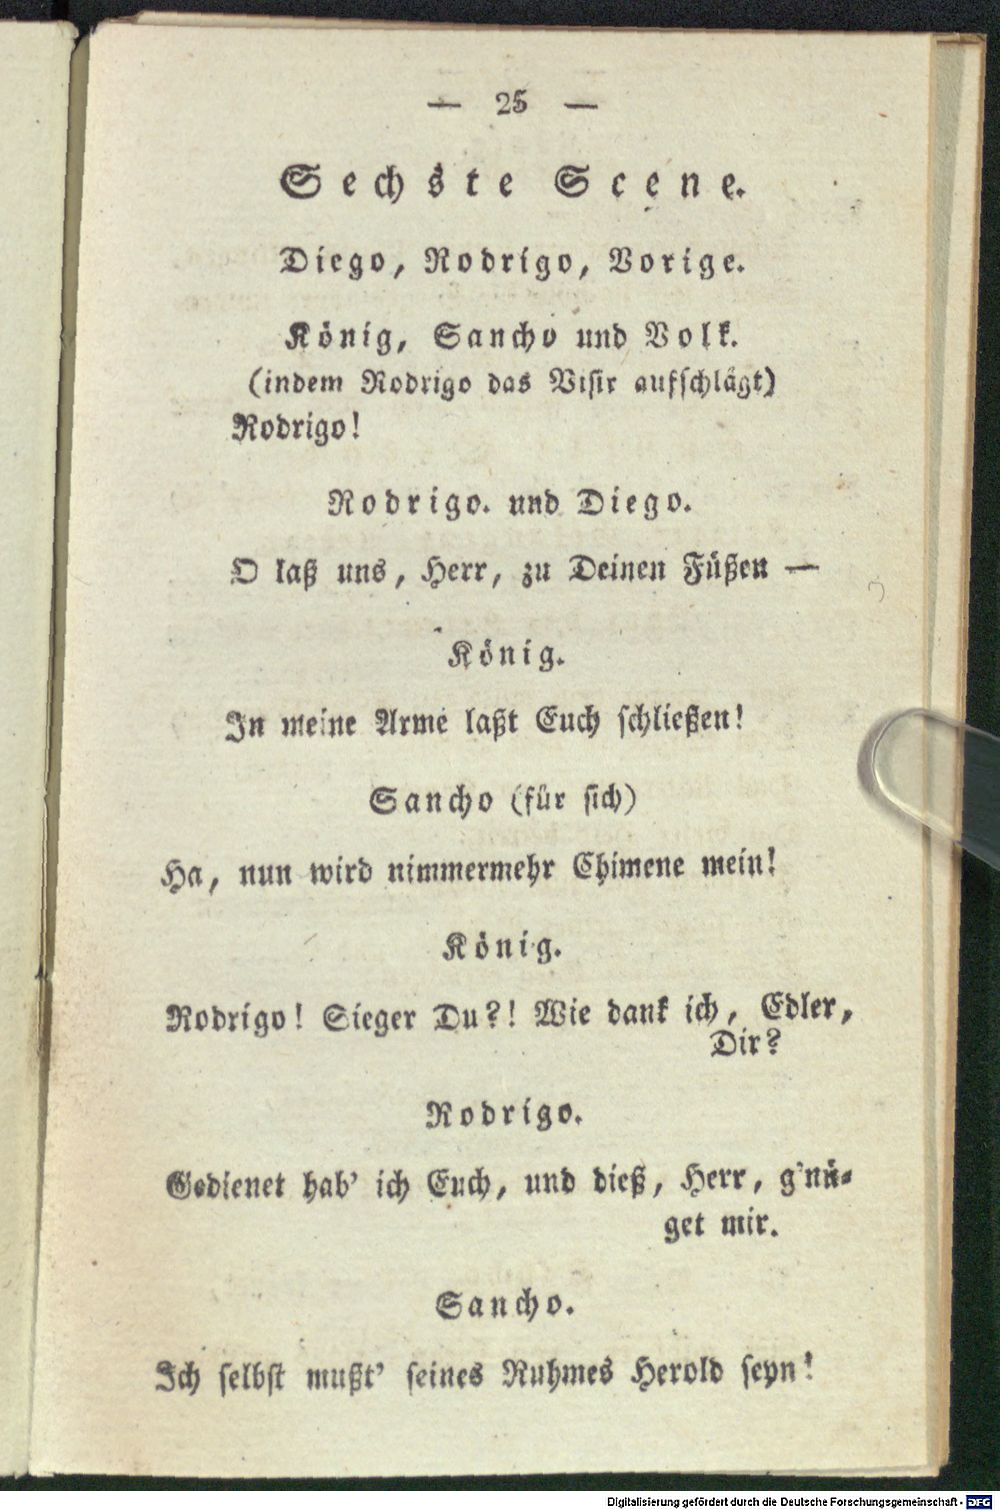 — 25 —
Sechste Scene.
Diego, Rodrigo, Vorige.
König, Sancho und Volk.
(indem Rodrigo das Visir aufschlägt)
Rodrigo!
Rodrigo. und Diego.
O laß uns, Herr, zu Deinen Füßen —
König.
In meine Arme laßt Euch schließen!
Sancho (für sich)
Ha, nun wird nimmermehr Chimene mein!
König.
Rodrigo! Sieger Du?! Wie dank ich, Edler,
Dir?
Rodrigo.
Gedienet hab' ich Euch, und dieß, Herr, g'nü-
get mir.
Sancho.
Ich selbst mußt' seines Ruhmes Herold seyn!
Digitalisierung gefördert durch die Deutsche Forschungsgemeinschaft - DFG